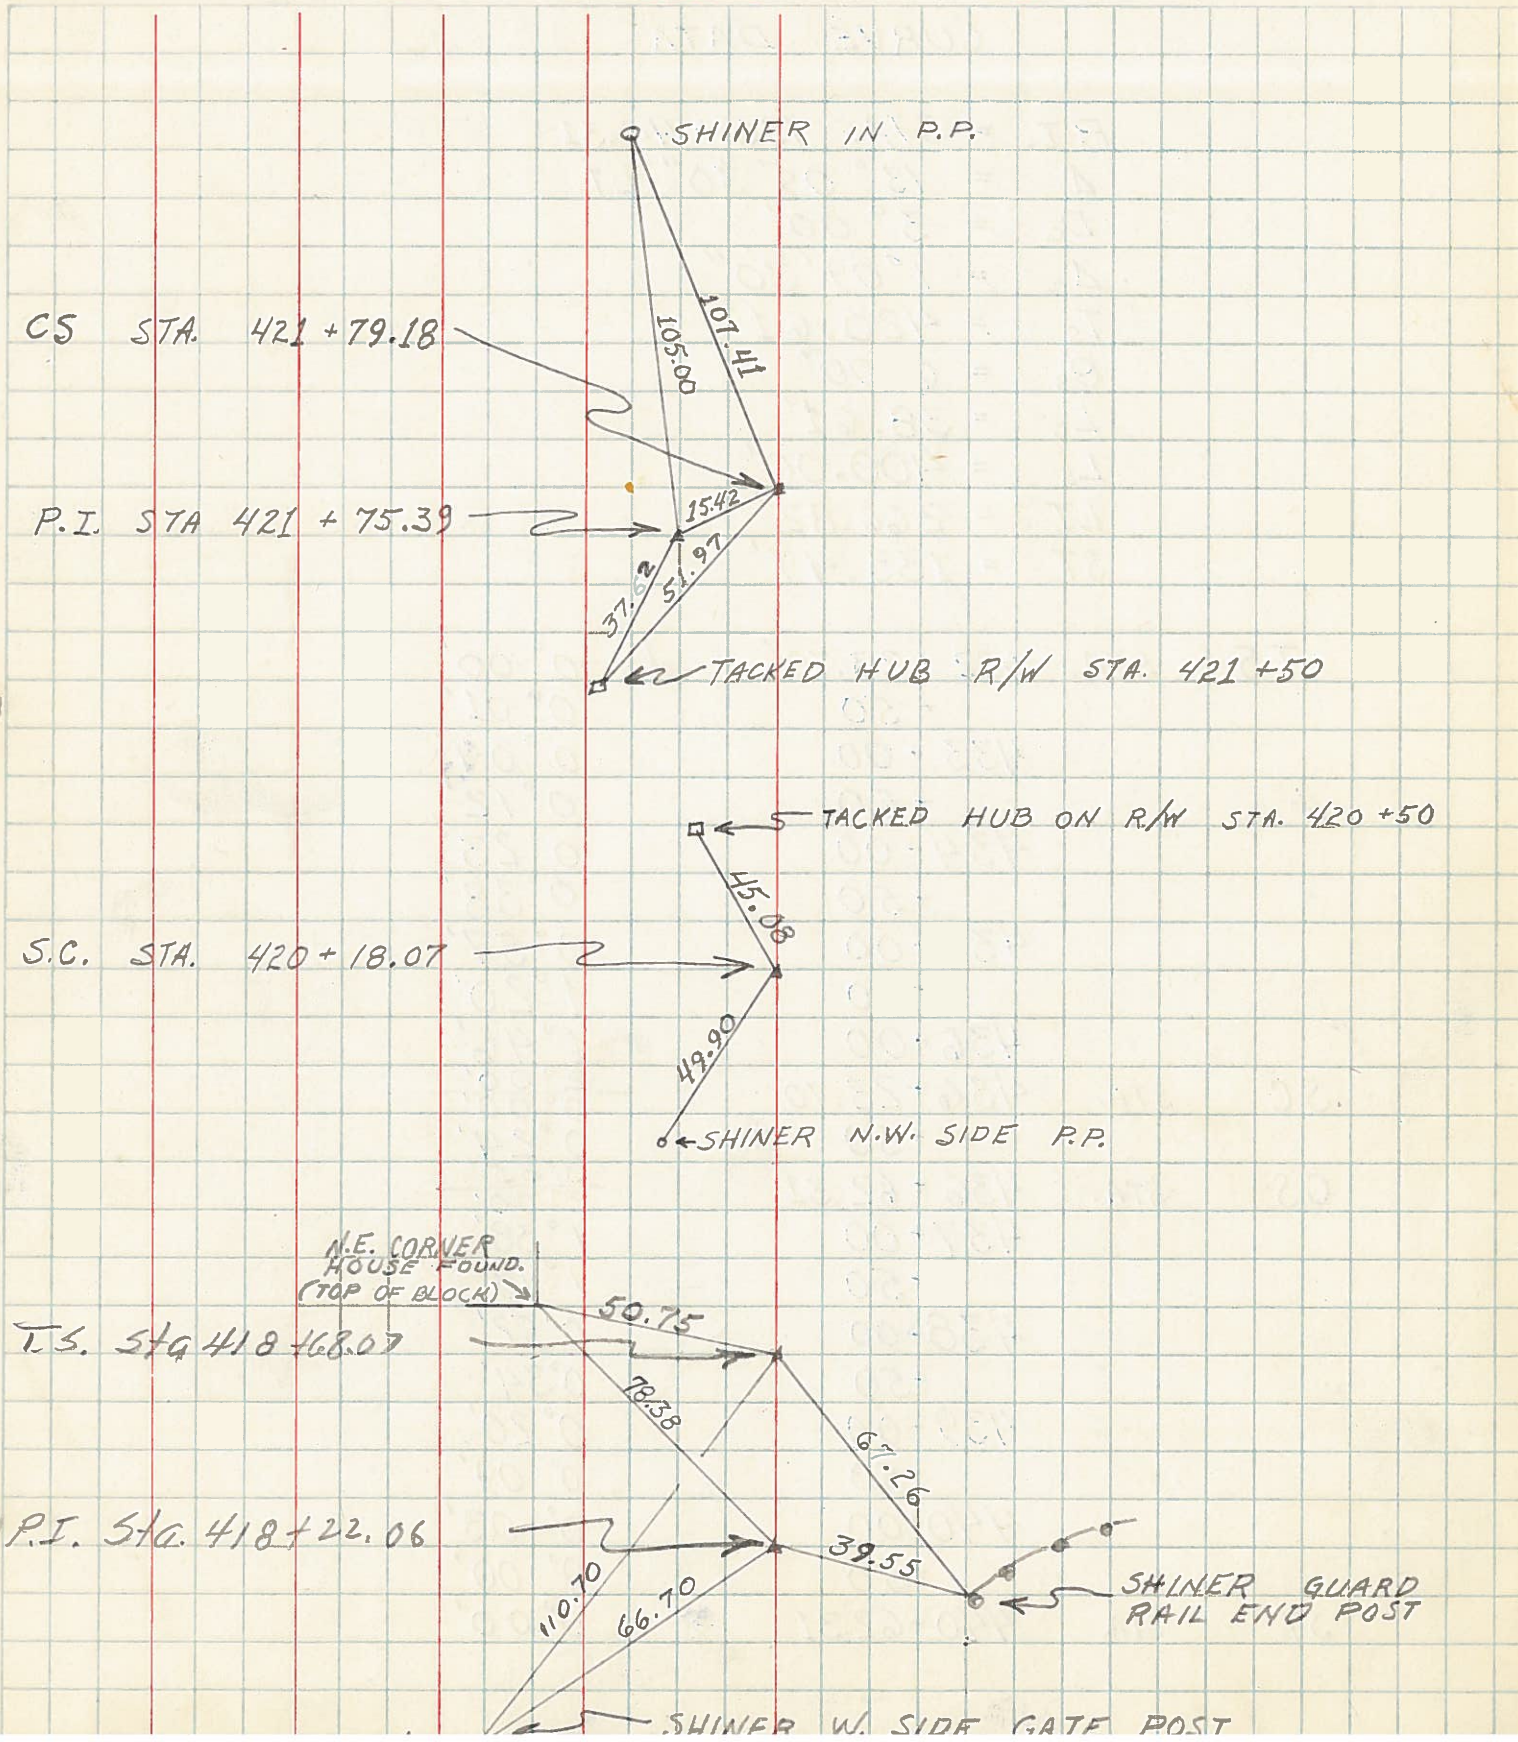 SHINER IN P.P.
107.41
105.00
CS STA. 421+79.18
15.42
P.I. STA 421 + 75.39
51.97
37.62
TACKED HUB R/W STA. 421+50
TACKED HUB ON R/W STA. 420+50
45.08
S.C. STA. 420+18.07
49.90
SHINER N.W. SIDE P.P.
N.E. CORNER
HOUSE FOUND.
(TOP OF BLOCK)
50.75
T.S. Sta 418+68.07
78.38
67.26
P.I. Sta. 418+22.06
39.55
110.70
66.70
SHINER GUARD
RAIL END POST
SHINER W. SIDE GATE POST